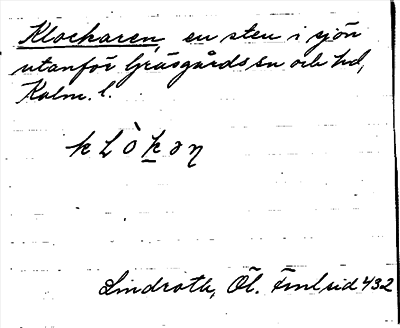 Klockaren, en sten i sjön
utanför Gräsgårds sn och hd,
Kalm. l.
Lindroth, Öl. Fml sid 432